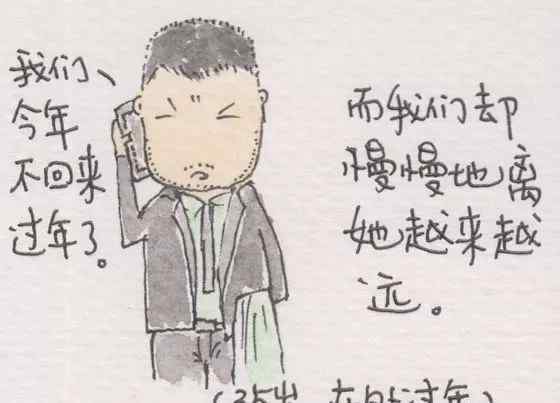 我们、
今年
不回来
过年了。
而我们却
慢慢地离
她越来越
远。